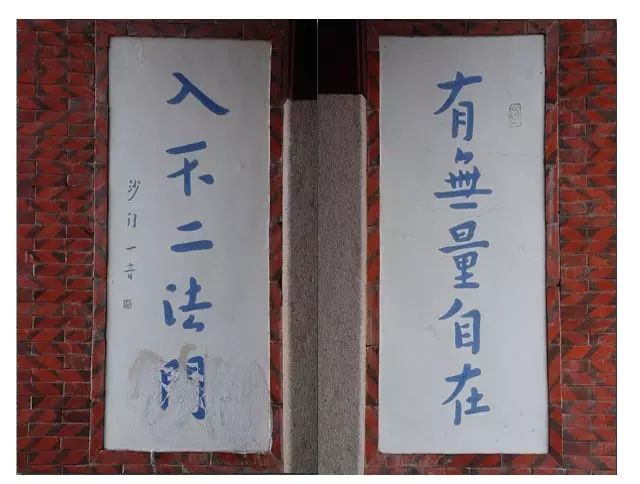 有無量自在
入不二法門
沙门一音